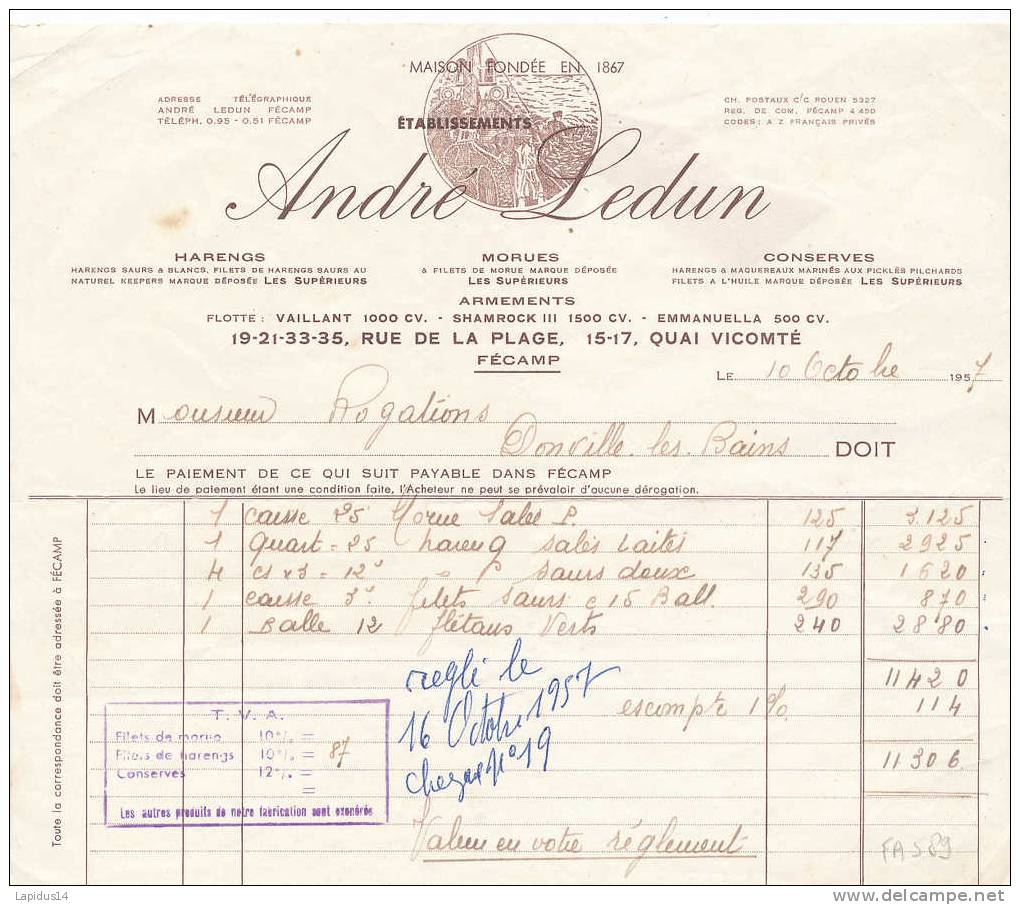 MAISON FONDÉE EN 1867
ADRESSE TÉLÉGRAPHIQUE
ANDRÉ LEDUN FÉCAMP
TÉLÉPH. 0.95 - 0.51 FÉCAMP
CH. POSTAUX C/C ROUEN 5327
REG. DE COM. FÉCAMP 4.450
CODES : A Z FRANÇAIS PRIVÉS
ÉTABLISSEMENTS
André Ledun
HARENGS
HARENGS SAURS & BLANCS, FILETS DE HARENGS SAURS AU
NATUREL KEEPERS MARQUE DÉPOSÉE LES SUPÉRIEURS
MORUES
& FILETS DE MORUE MARQUE DÉPOSÉE
LES SUPÉRIEURS
CONSERVES
HARENGS & MAQUEREAUX MARINÉS AUX PICKLES PILCHARDS
FILETS A L'HUILE MARQUE DÉPOSÉE LES SUPÉRIEURS
ARMEMENTS
FLOTTE : VAILLANT 1000 CV. - SHAMROCK III 1500 CV. - EMMANUELLA 500 CV.
19-21-33-35, RUE DE LA PLAGE, 15-17, QUAI VICOMTÉ
FÉCAMP
LE 10 Octobre 1957
Monsieur Rogations
Donville-les-Bains DOIT
LE PAIEMENT DE CE QUI SUIT PAYABLE DANS FÉCAMP
Le lieu de paiement étant une condition faite, l'Acheteur ne peut se prévaloir d'aucune dérogation.
1 caisse 25 Morue Salée P. 125 3.125
1 Quart = 25 hareng salés Laités 117 2925
4 cs x 3 = 12 " saurs doux 135 1620
1 caisse 3 filets saurs 15 Ball. 290 870
1 Balle 12 flétans Verts 240 2880
11420
escompte 1% 114
11306
reglé le
16 Octobre 1957
cheque n° 19
T. V. A.
Filets de morue 10% =
Filets de harengs 10% = 87
Conserves 12% =
=
Les autres produits de notre fabrication sont exonérés
Valeur en votre réglement
FAS89
Toute la correspondance doit être adressée à FÉCAMP
Lapidus14
www.delcampe.net